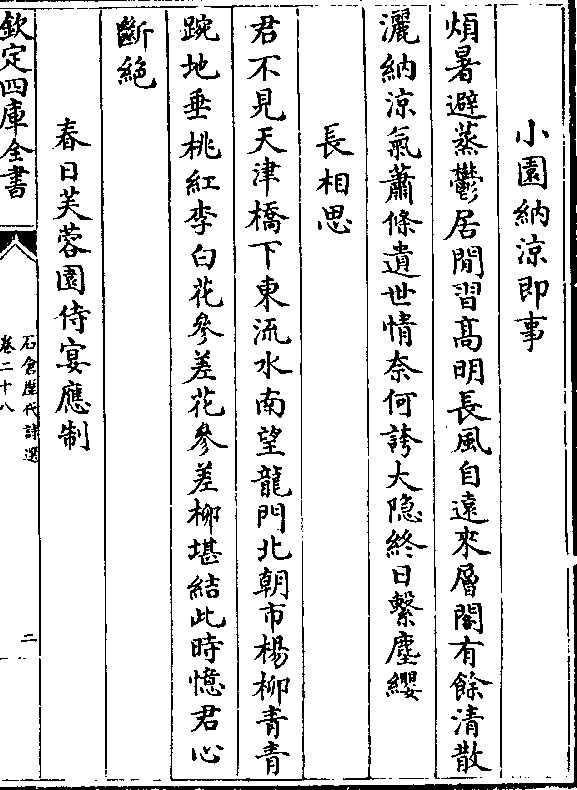 小園納涼即事
煩暑避蒸鬱居閒習髙明長風自遠來層閣有餘清散
灑納涼氣蕭條遺世情奈何誇大隐終日繫塵纓
長相思
君不見天津橋下東流水南望龍門北朝市楊柳青青
踠地垂桃紅李白花參差花參差柳堪結此時憶君心
斷絶
春日芙蓉園侍宴應制
欽定四庫全書
石倉歷代詩選
卷二十八
二